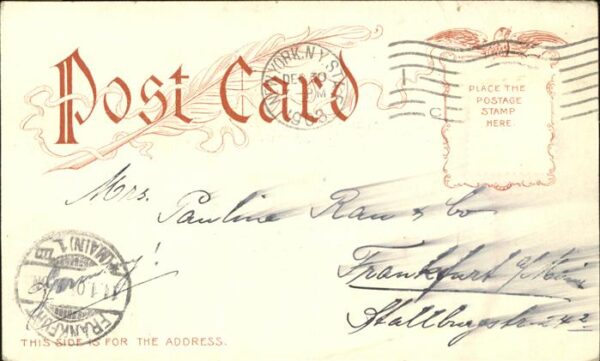 Post Card
NEW YORK, N.Y. STA.
DEC 30
PM
1903
PLACE THE
POSTAGE
STAMP
HERE.
Mrs.
Pauline Rau & Co
Frankfurt a/Main
Stallburgstr. 242
Germany!
FRANKFURT (MAIN) 1.
11.1.0
THIS SIDE IS FOR THE ADDRESS.